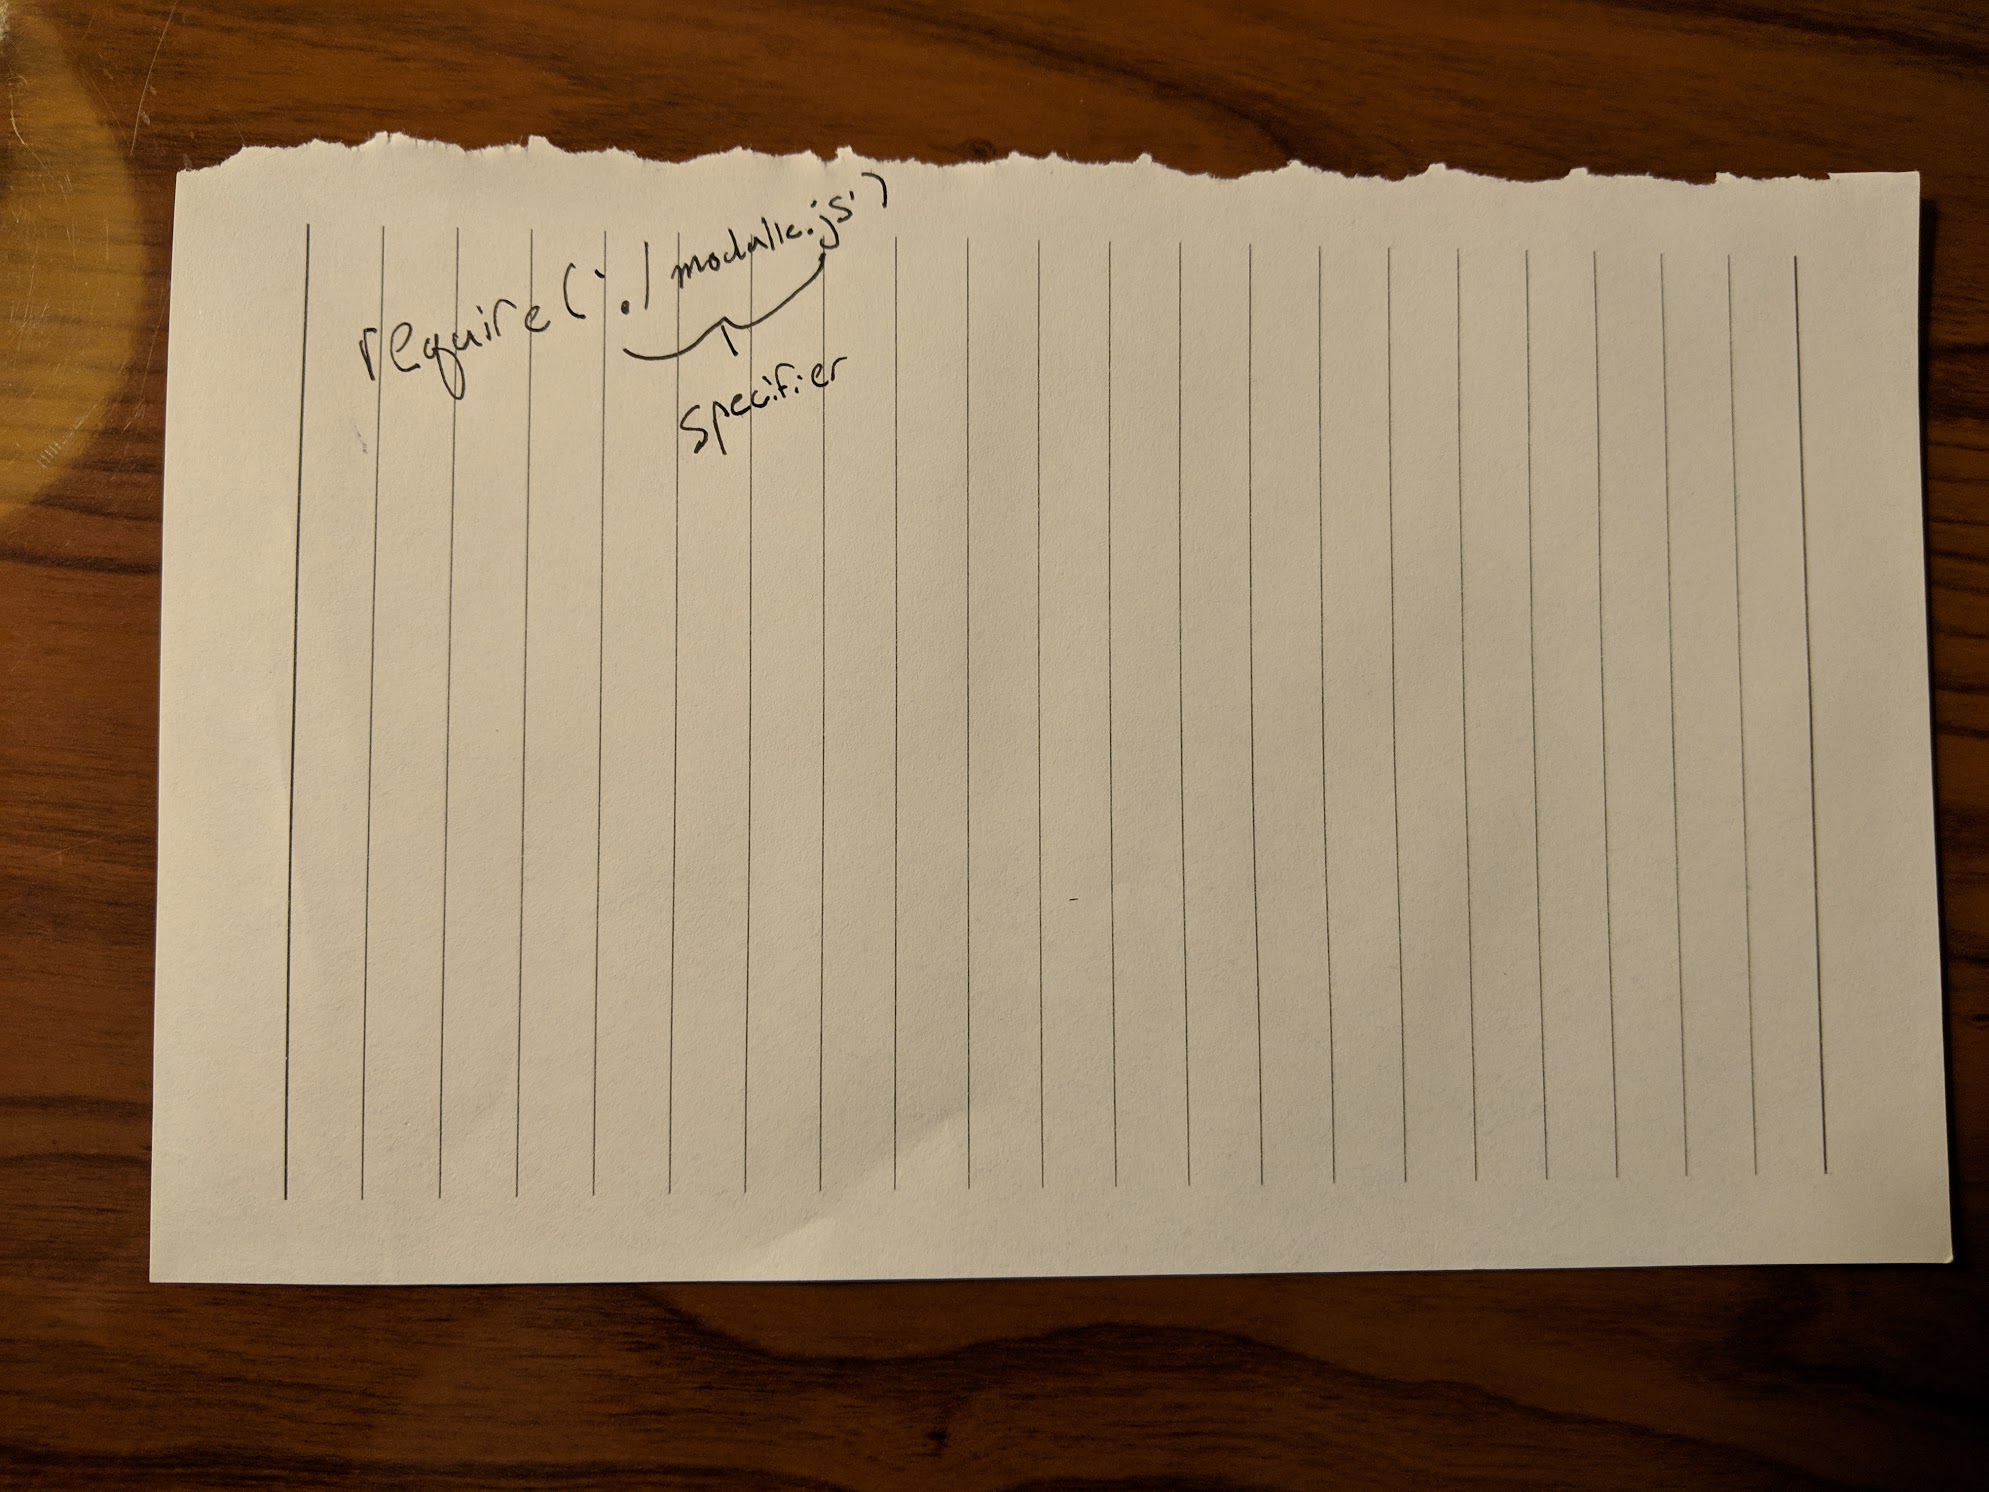 require('./module.js')
specifier